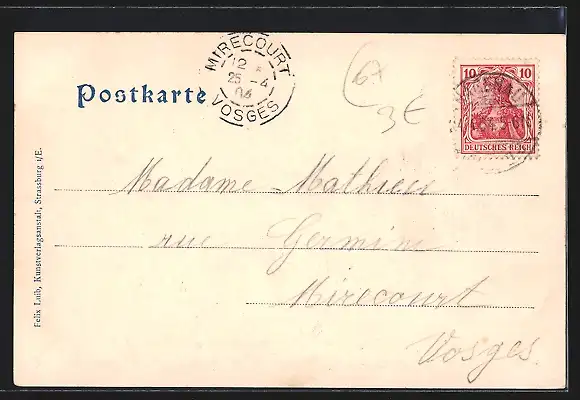 MIRECOURT
12
25 -4
04
VOSGES
67
3€
Postkarte
10 10
DEUTSCHES REICH
Madame Mathieu
rue Germini
Mirecourt
Vosges
Felix Luib, Kunstverlagsanstalt, Strassburg i/E.